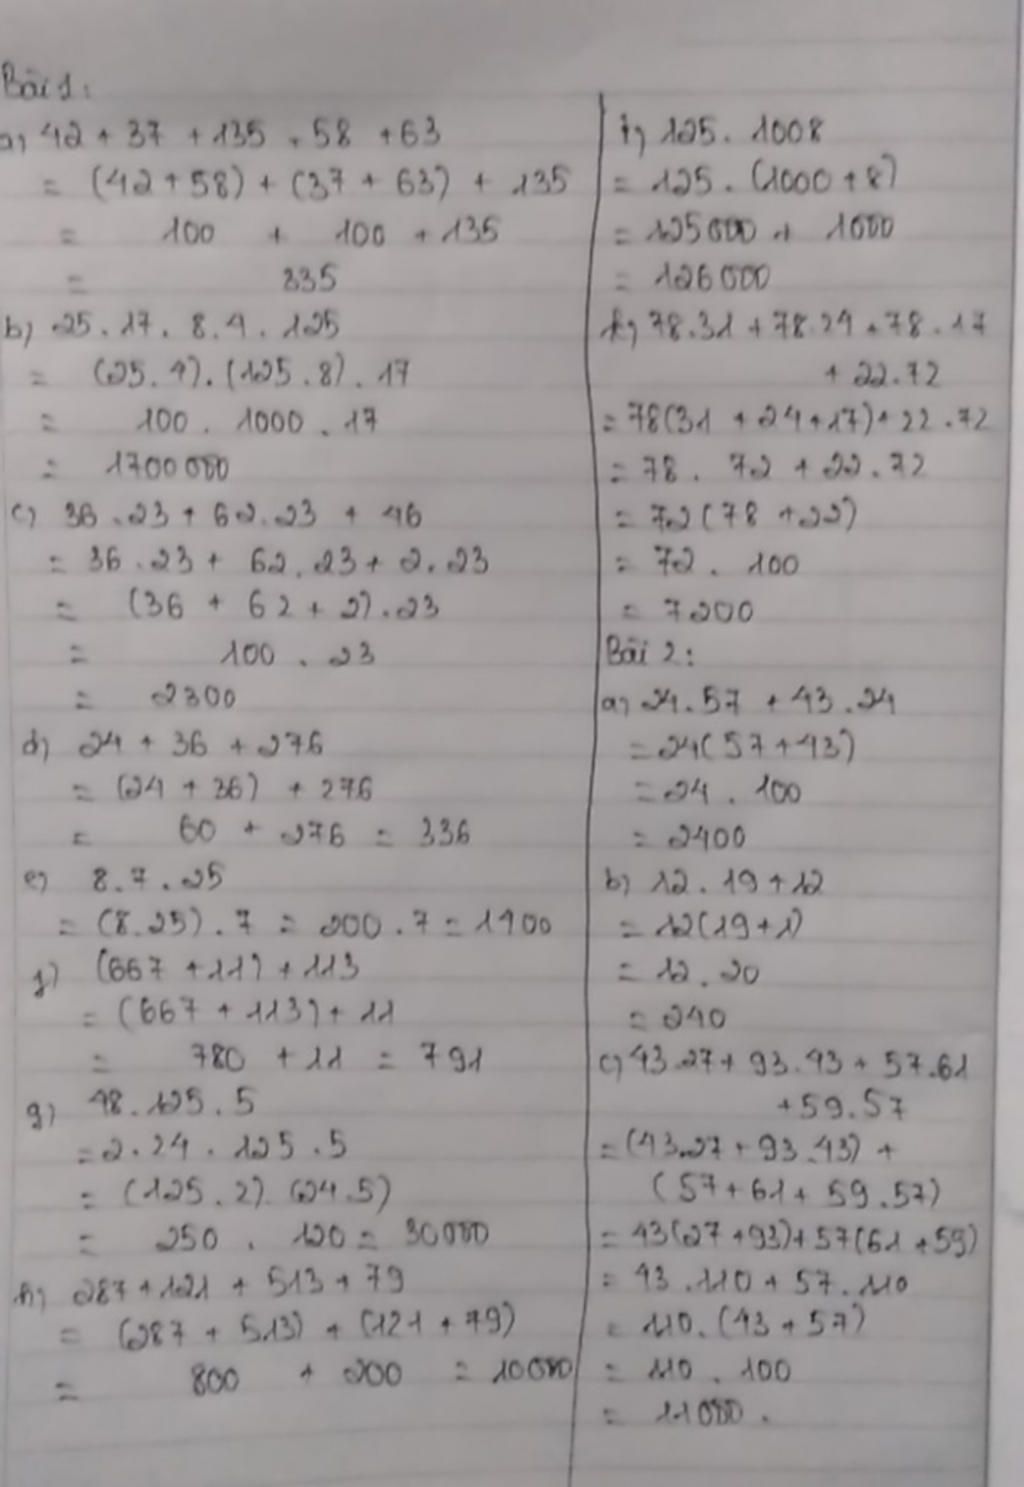 Bài 1:
a) 42 + 37 + 135 + 58 + 63
= (42 + 58) + (37 + 63) + 135
= 100 + 100 + 135
= 335
b) 25 . 17 . 8 . 4 . 125
= (25 . 4) . (125 . 8) . 17
= 100 . 1000 . 17
= 1700000
c) 36 . 23 + 62 . 23 + 46
= 36 . 23 + 62 . 23 + 2 . 23
= (36 + 62 + 2) . 23
= 100 . 23
= 2300
d) 24 + 36 + 276
= (24 + 36) + 276
= 60 + 276 = 336
e) 8 . 7 . 25
= (8 . 25) . 7 = 200 . 7 = 1400
f) (667 + 11) + 113
= (667 + 113) + 11
= 780 + 11 = 791
g) 48 . 125 . 5
= 2 . 24 . 125 . 5
= (125 . 2) . (24 . 5)
= 250 . 120 = 30000
h) 287 + 121 + 513 + 79
= (287 + 513) + (121 + 79)
= 800 + 200 = 10000
i) 125 . 1008
= 125 . (1000 + 8)
= 125000 + 1000
= 126000
k) 78 . 31 + 78 . 24 + 78 . 17
+ 22 . 72
= 78(31 + 24 + 17) + 22 . 72
= 78 . 72 + 22 . 72
= 72(78 + 22)
= 72 . 100
= 7200
Bài 2:
a) 24 . 57 + 43 . 24
= 24(57 + 43)
= 24 . 100
= 2400
b) 12 . 19 + 12
= 12(19 + 1)
= 12 . 20
= 240
c) 43 . 27 + 93 . 43 + 57 . 61
+ 59 . 57
= (43 . 27 + 93 . 43) +
(57 + 61 + 59 . 57)
= 43(27 + 93) + 57(61 + 59)
= 43 . 110 + 57 . 110
= 110 . (43 + 57)
= 110 . 100
= 11000 .